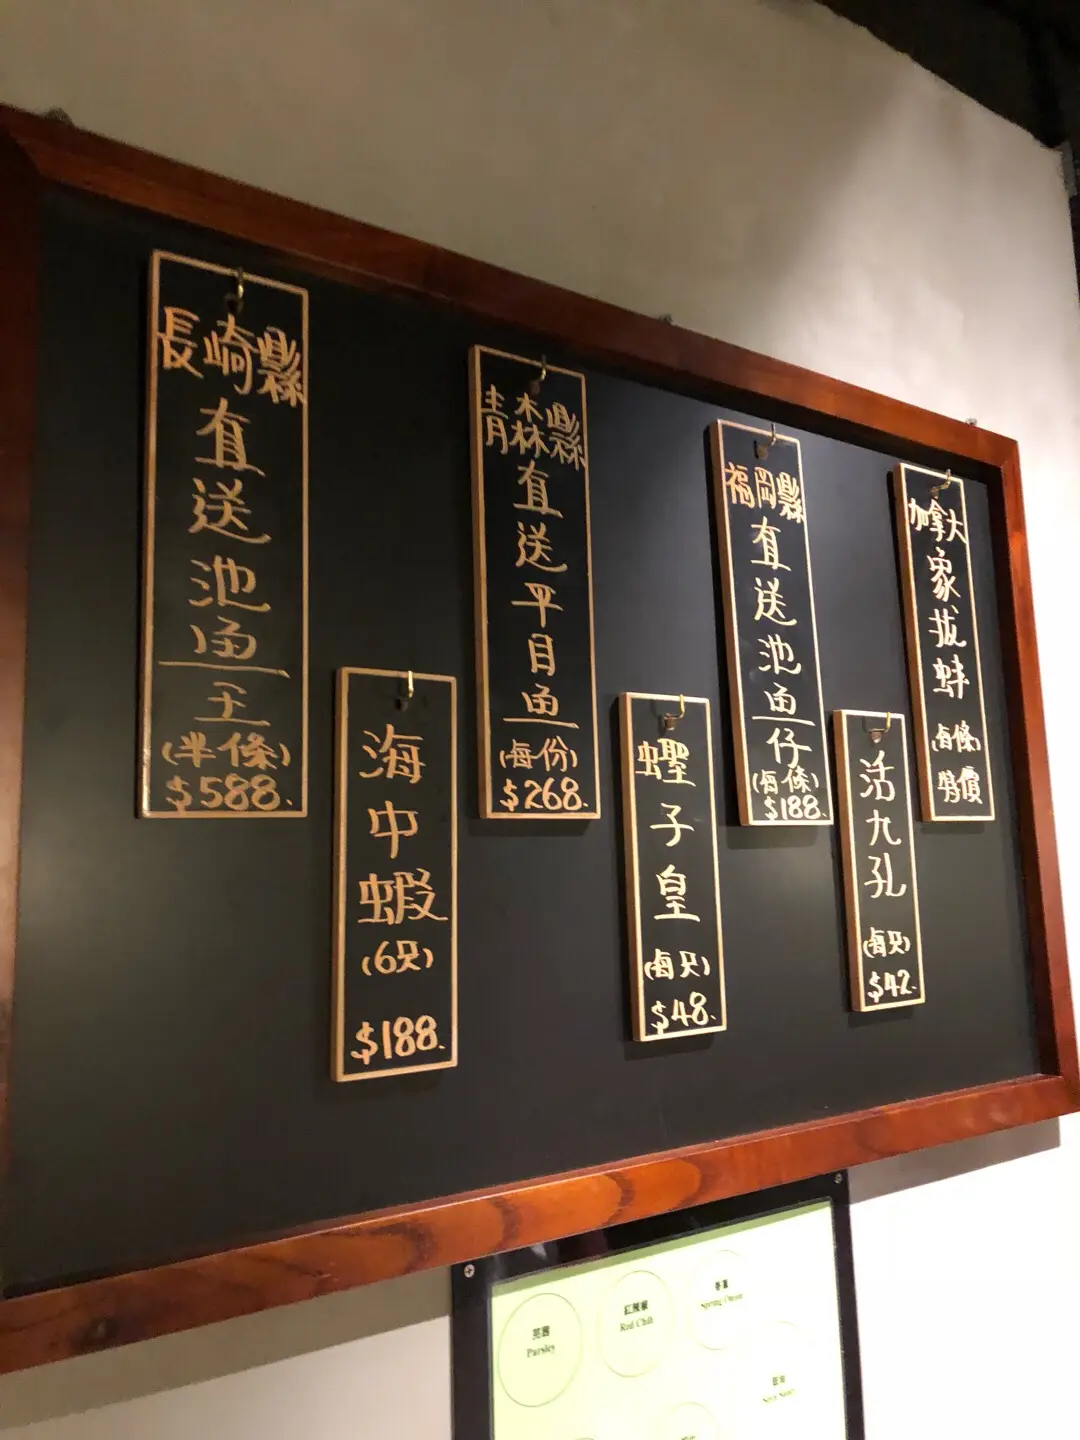 長崎縣
直送池魚王
(半條)
$588.
海中蝦
(6只)
$188.
青森縣
直送平目魚
(每份)
$268.
蟶子皇
(每只)
$48.
福岡縣
直送池魚仔
(每條)
$188.
活九孔
(每只)
$42.
加拿大
象拔蚌
(每條)
特價
芫茜
Parsley
紅辣椒
Red Chili
香蔥
Spring Onion